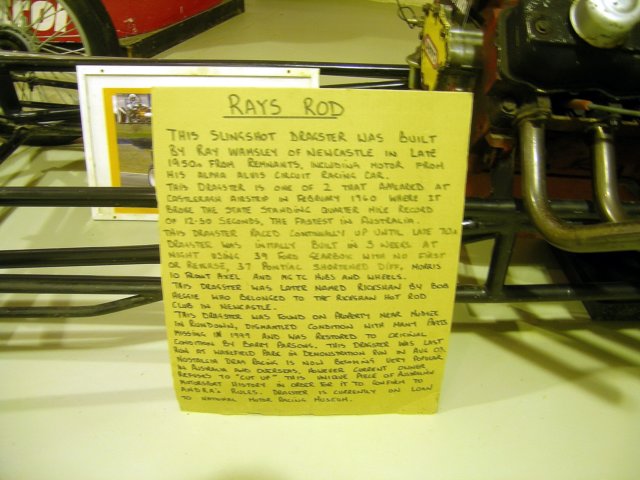 RAYS ROD
THIS SLINGSHOT DRAGSTER WAS BUILT
BY RAY WAMSLEY OF NEWCASTLE IN LATE
1950s FROM REMNANTS, INCLUDING MOTOR FROM
HIS ALPHA ALVIS CIRCUIT RACING CAR.
THIS DRAGSTER IS ONE OF 2 THAT APPEARED AT
CASTLEREAGH AIRSTRIP IN FEBRUARY 1960 WHERE IT
BROKE THE STATE STANDING QUARTER MILE RECORD
OF 12.50 SECONDS, THE FASTEST IN AUSTRALIA.
THIS DRAGSTER RACED CONTINUALLY UP UNTIL LATE 70s
DRAGSTER WAS INITALLY BUILT IN 3 WEEKS AT
NIGHT USING 39 FORD GEARBOX WITH NO FIRST
OR REVERSE, 37 PONTIAC SHORTENED DIFF, MORRIS
10 FRONT AXEL AND MG TC HUBS AND WHEELS.
THIS DRAGSTER WAS LATER NAMED RICKSHAW BY BOB
WHO BELONGED TO THE RICKSHAW HOT ROD
CLUB IN NEWCASTLE.
THIS DRAGSTER WAS FOUND ON PROPERTY NEAR MUDGEE
IN RUNDOWN, DISMANTLED CONDITION WITH MANY PARTS
MISSING IN 1999 AND WAS RESTORED TO ORIGINAL
CONDITION BY BARRY PARSONS. THIS DRAGSTER WAS LAST
RUN AT WAKEFIELD PARK IN DEMONSTRATION RUN IN AUG 03.
NOSTALGIA DRAG RACING IS NOW BECOMING VERY POPULAR
IN AUSTRALIA AND OVERSEAS, HOWEVER CURRENT OWNER
REFUSED TO "CUT UP" THIS UNIQUE PIECE OF AUSTRALIAN
MOTORSPORT HISTORY IN ORDER FOR IT TO CONFIRM TO
ANDRA'S RULES. DRAGSTER IS CURRENTLY ON LOAN
TO NATIONAL MOTOR RACING MUSEUM.